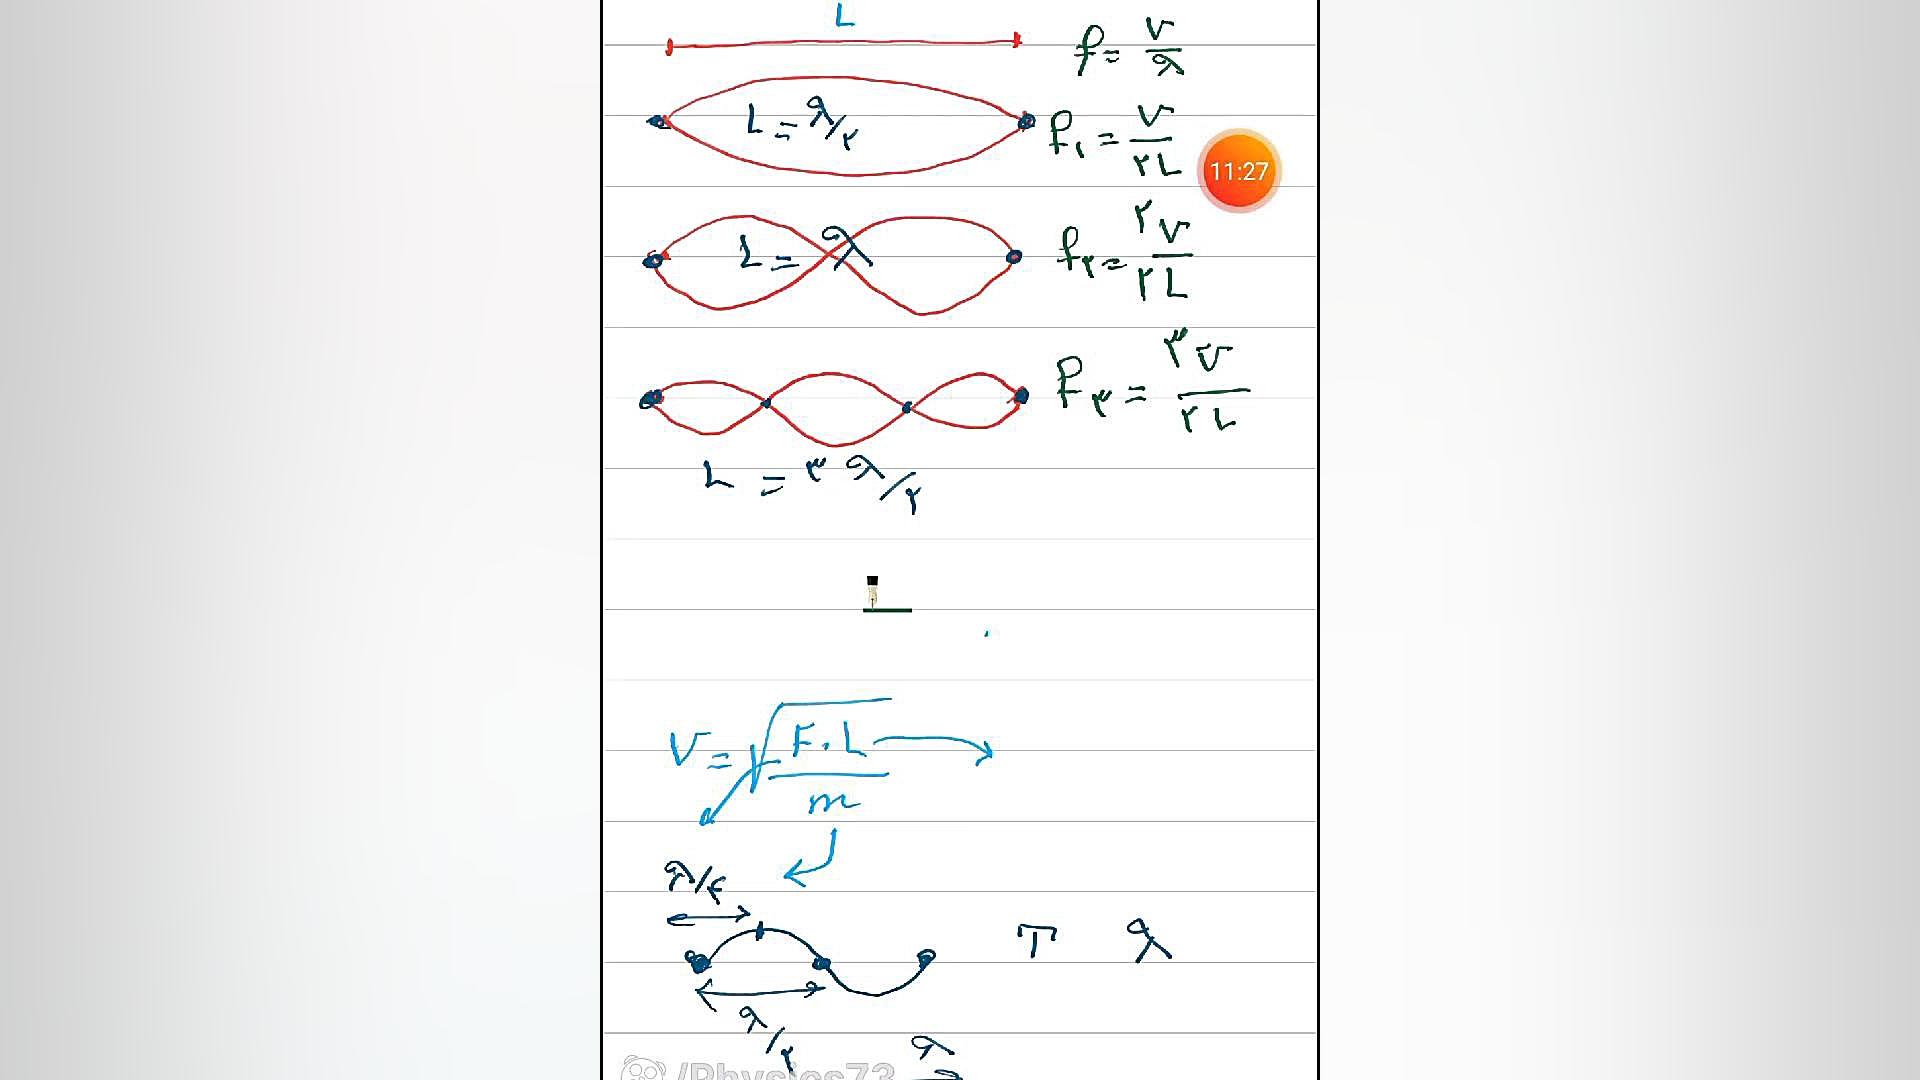 L
f = v/λ
L = λ/۲
f۱ = v/۲L
11:27
L = λ
f۲ = ۲v/۲L
f۳ = ۳v/۲L
L = ۳λ/۲
V = √(F.L/m)
λ/۴
T λ
λ/۲
λ
/Physics73